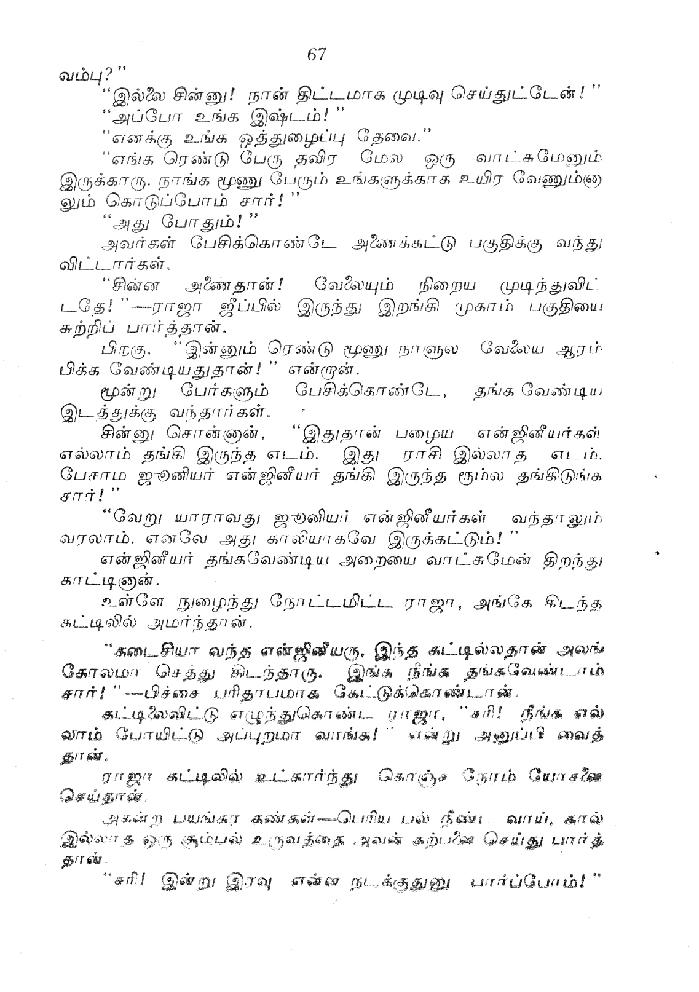 67
வம்பு?"
"இல்லை சின்னு! நான் திட்டமாக முடிவு செய்துட்டேன்!"
"அப்போ உங்க இஷ்டம்!"
"எனக்கு உங்க ஒத்துழைப்பு தேவை."
"எங்க ரெண்டு பேரு தவிர மேல ஒரு வாட்சுமேனும்
இருக்காரு. நாங்க மூணு பேரும் உங்களுக்காக உயிர வேணும்னா
லும் கொடுப்போம் சார்!"
"அது போதும்!"
அவர்கள் பேசிக்கொண்டே அணைக்கட்டு பகுதிக்கு வந்து
விட்டார்கள்.
"சின்ன அணைதான்! வேலையும் நிறைய முடிந்துவிட்
டதே!"—ராஜா ஜீப்பில் இருந்து இறங்கி முகாம் பகுதியை
சுற்றிப் பார்த்தான்.
பிறகு. "இன்னும் ரெண்டு மூணு நாளுல வேலைய ஆரம்
பிக்க வேண்டியதுதான்!" என்றான்.
மூன்று பேர்களும் பேசிக்கொண்டே, தங்க வேண்டிய
இடத்துக்கு வந்தார்கள்.
சின்னு சொன்னான், "இதுதான் பழைய என்ஜினீயர்கள்
எல்லாம் தங்கி இருந்த எடம். இது ராசி இல்லாத எடம்.
பேசாம ஜூனியர் என்ஜினீயர் தங்கி இருந்த ரூம்ல தங்கிடுங்க
சார்!"
"வேறு யாராவது ஜூனியர் என்ஜினீயர்கள் வந்தாலும்
வரலாம். எனவே அது காலியாகவே இருக்கட்டும்!"
என்ஜினீயர் தங்கவேண்டிய அறையை வாட்சுமேன் திறந்து
காட்டினான்.
உள்ளே நுழைந்து நோட்டமிட்ட ராஜா, அங்கே கிடந்த
கட்டிலில் அமர்ந்தான்.
"கடைசியா வந்த என்ஜினீயரு, இந்த கட்டில்லதான் அலங்
கோலமா செத்து கிடந்தாரு. இங்க நீங்க தங்கவேண்டாம்
சார்!"—பிச்சை பரிதாபமாக கேட்டுக்கொண்டான்.
கட்டிலைவிட்டு எழுந்துகொண்ட ராஜா, "சரி! நீங்க எல்
லாம் போயிட்டு அப்புறமா வாங்க!" என்று அனுப்பி வைத்
தான்.
ராஜா கட்டிலில் உட்கார்ந்து கொஞ்ச நேரம் யோசனை
செய்தான்.
அகன்ற பயங்கர கண்கள்—பெரிய பல் நீண்ட வாய், கால்
இல்லாத ஒரு சூம்பல் உருவத்தை அவன் கற்பனை செய்து பார்த்
தான்.
"சரி! இன்று இரவு என்ன நடக்குதுனு பார்ப்போம்!"